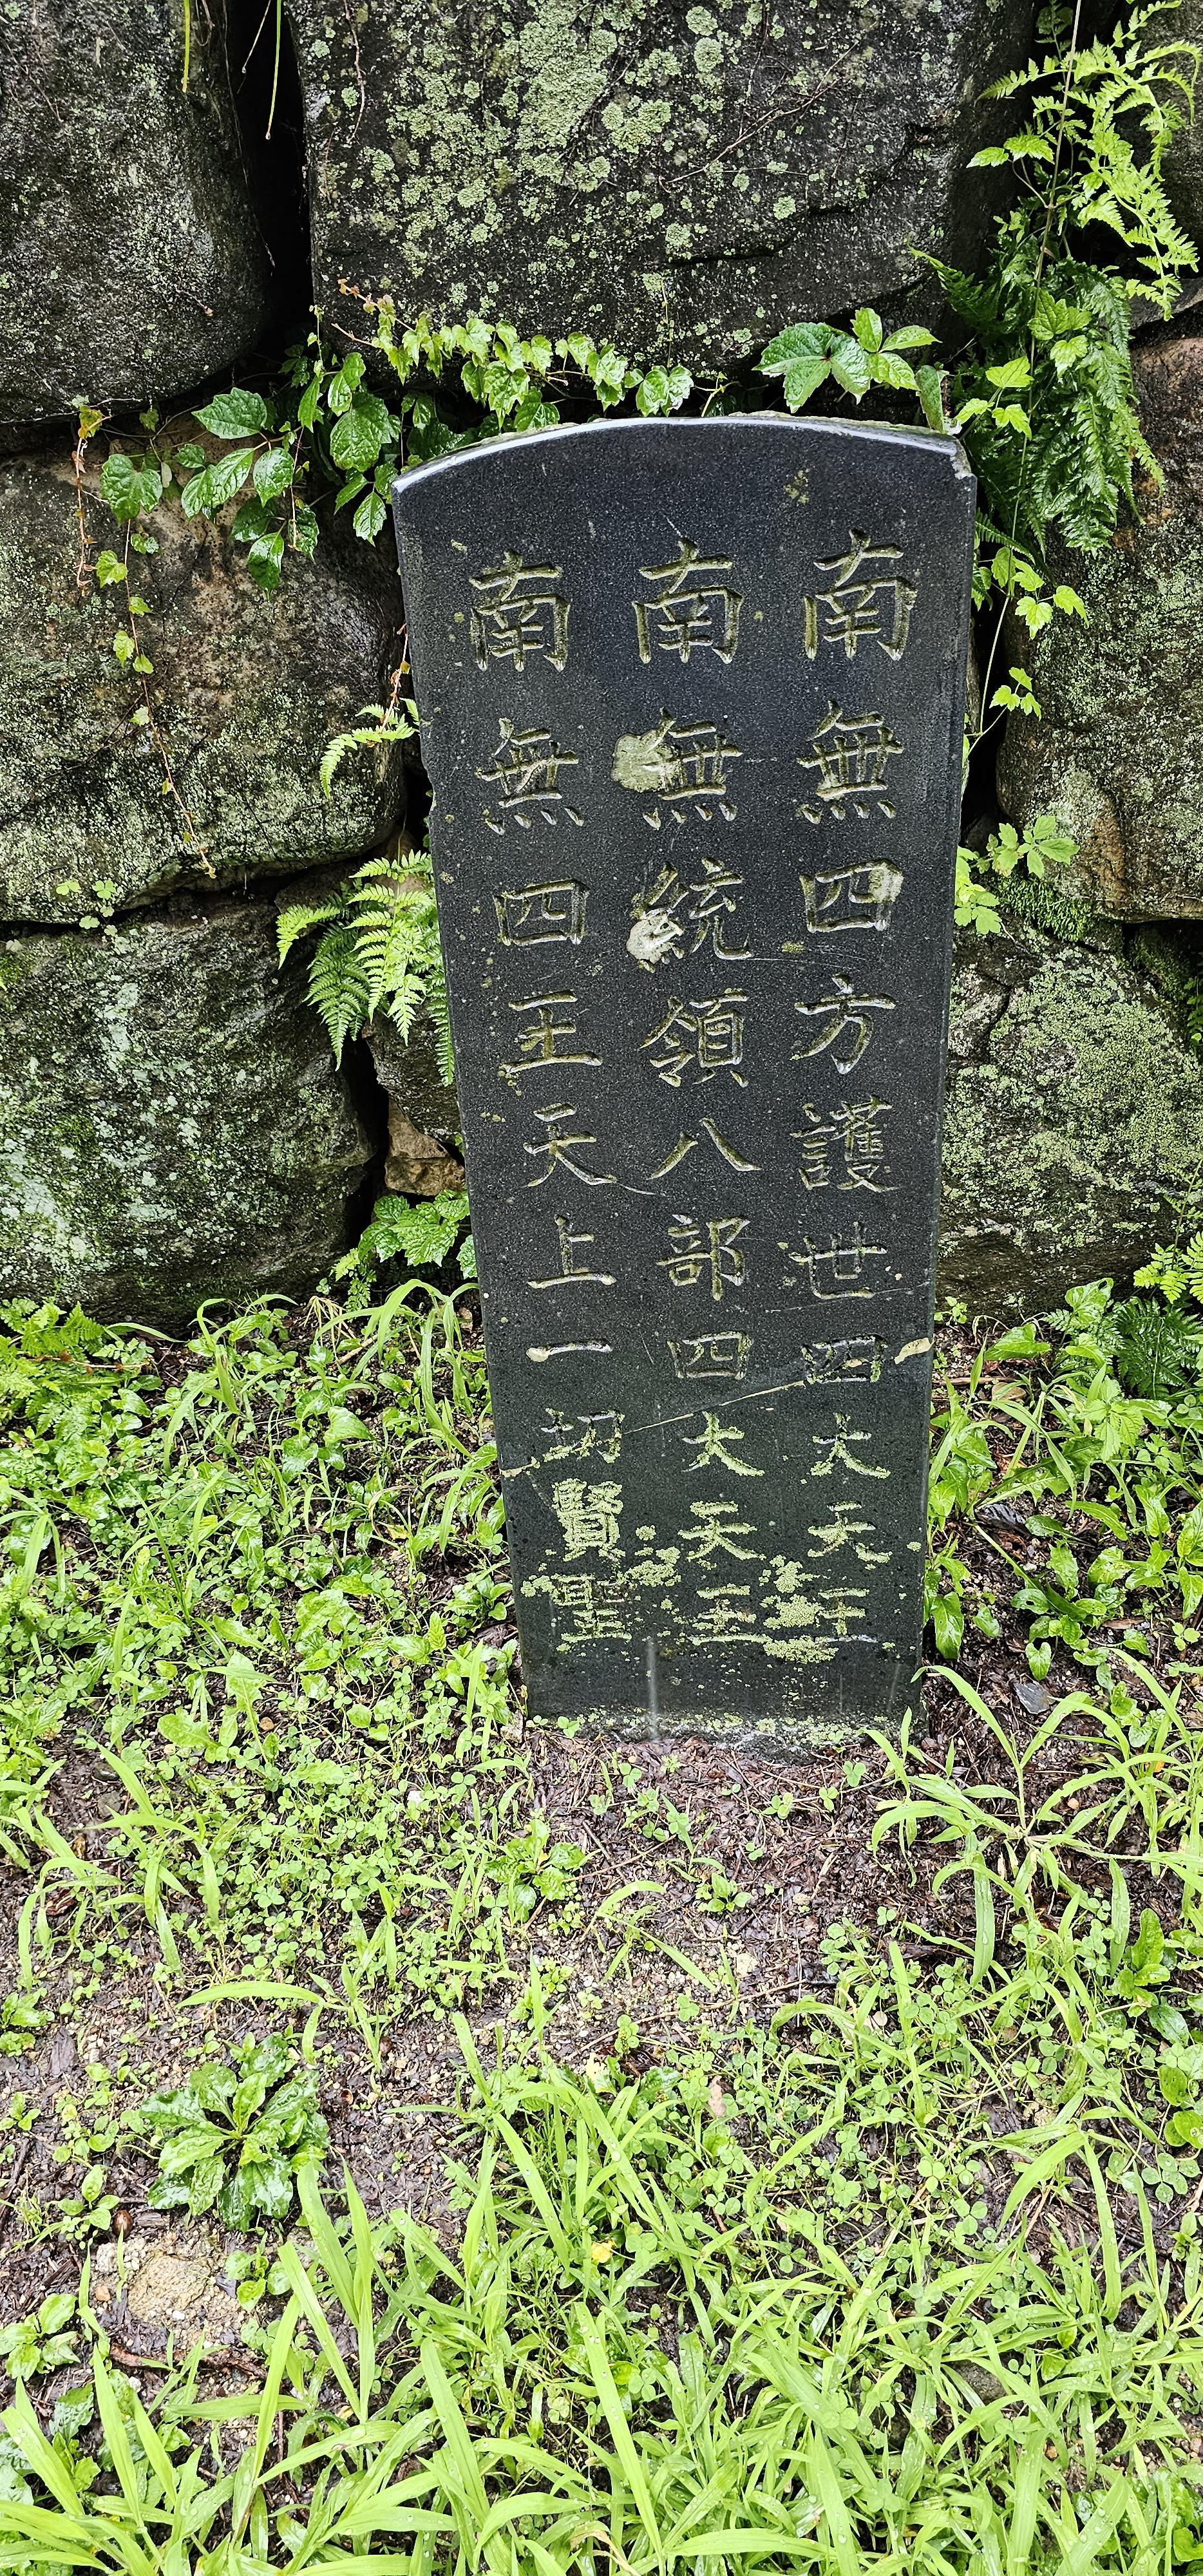 南無四方護世四大天王
南無統領八部四大天王
南無四王天上一切賢聖